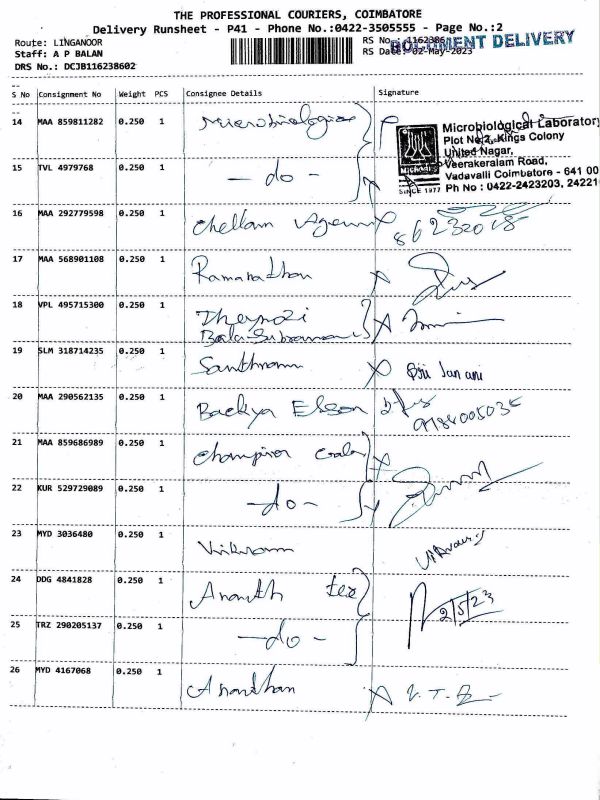 THE PROFESSIONAL COURIERS, COIMBATORE
Delivery Runsheet - P41 - Phone No.:0422-3505555 - Page No.:2
Route: LINGANOOR
RS No. :1162386
DOCUMENT DELIVERY
Staff: A P BALAN
RS Date: 02-May-2023
DRS No.: DCJB116238602
S No Consignment No Weight PCS Consignee Details Signature
14 MAA 859811282 0.250 1
Microbiological Laboratory
Plot No:2, Kings Colony
United Nagar,
Veerakeralam Road,
Vadavalli Coimbatore - 641 00
Ph No : 0422-2423203, 24221
SINCE 1977
15 TVL 4979768 0.250 1 - do -
16 MAA 292779598 0.250 1 Chellam
17 MAA 568901108 0.250 1 Ramanathan
18 VPL 495715300 0.250 1
19 SLM 318714235 0.250 1
20 MAA 290562135 0.250 1
21 MAA 859686989 0.250 1 Champion
22 KUR 529729089 0.250 1 - do -
23 MYD 3036480 0.250 1 Vikram
24 DDG 4841828 0.250 1 Ananth tex
2/5/23
25 TRZ 290205137 0.250 1 - do -
26 MYD 4167068 0.250 1 Anandhan